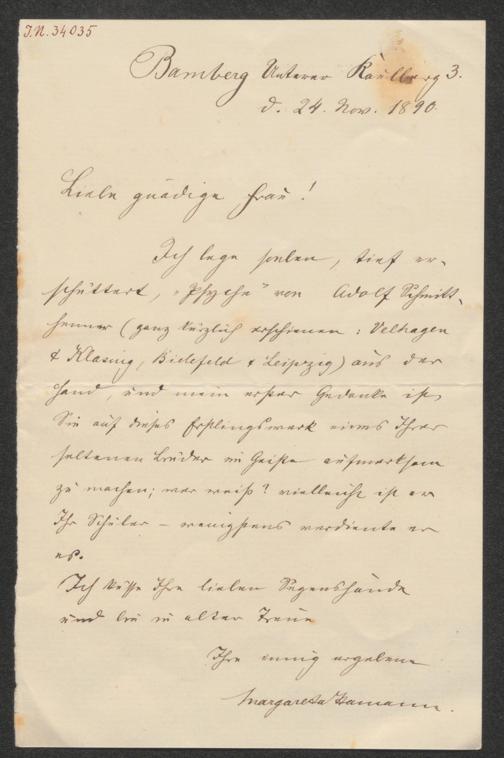 J.N. 34035
Bamberg Unterer Kaulberg 3.
d. 24. Nov. 1890.
Liebe gnädige Frau!
Ich lege soeben, tief er-
schüttert, „Psyche" von Adolf Schmitt-
henner (ganz kürzlich erschienen: Velhagen
& Klasing, Bielefeld & Leipzig) aus der
Hand, und mein erster Gedanke ist,
Sie auf dieses Erstlingswerk eines Ihrer
seltenen Brüder im Geiste aufmerksam
zu machen; wer weiß? vielleicht ist er
Ihr Schüler – wenigstens verdiente er
es.
Ich küsse Ihre lieben Segenshände
und bin in alter Treue
Ihre innig ergebene
Margareta Hamann.